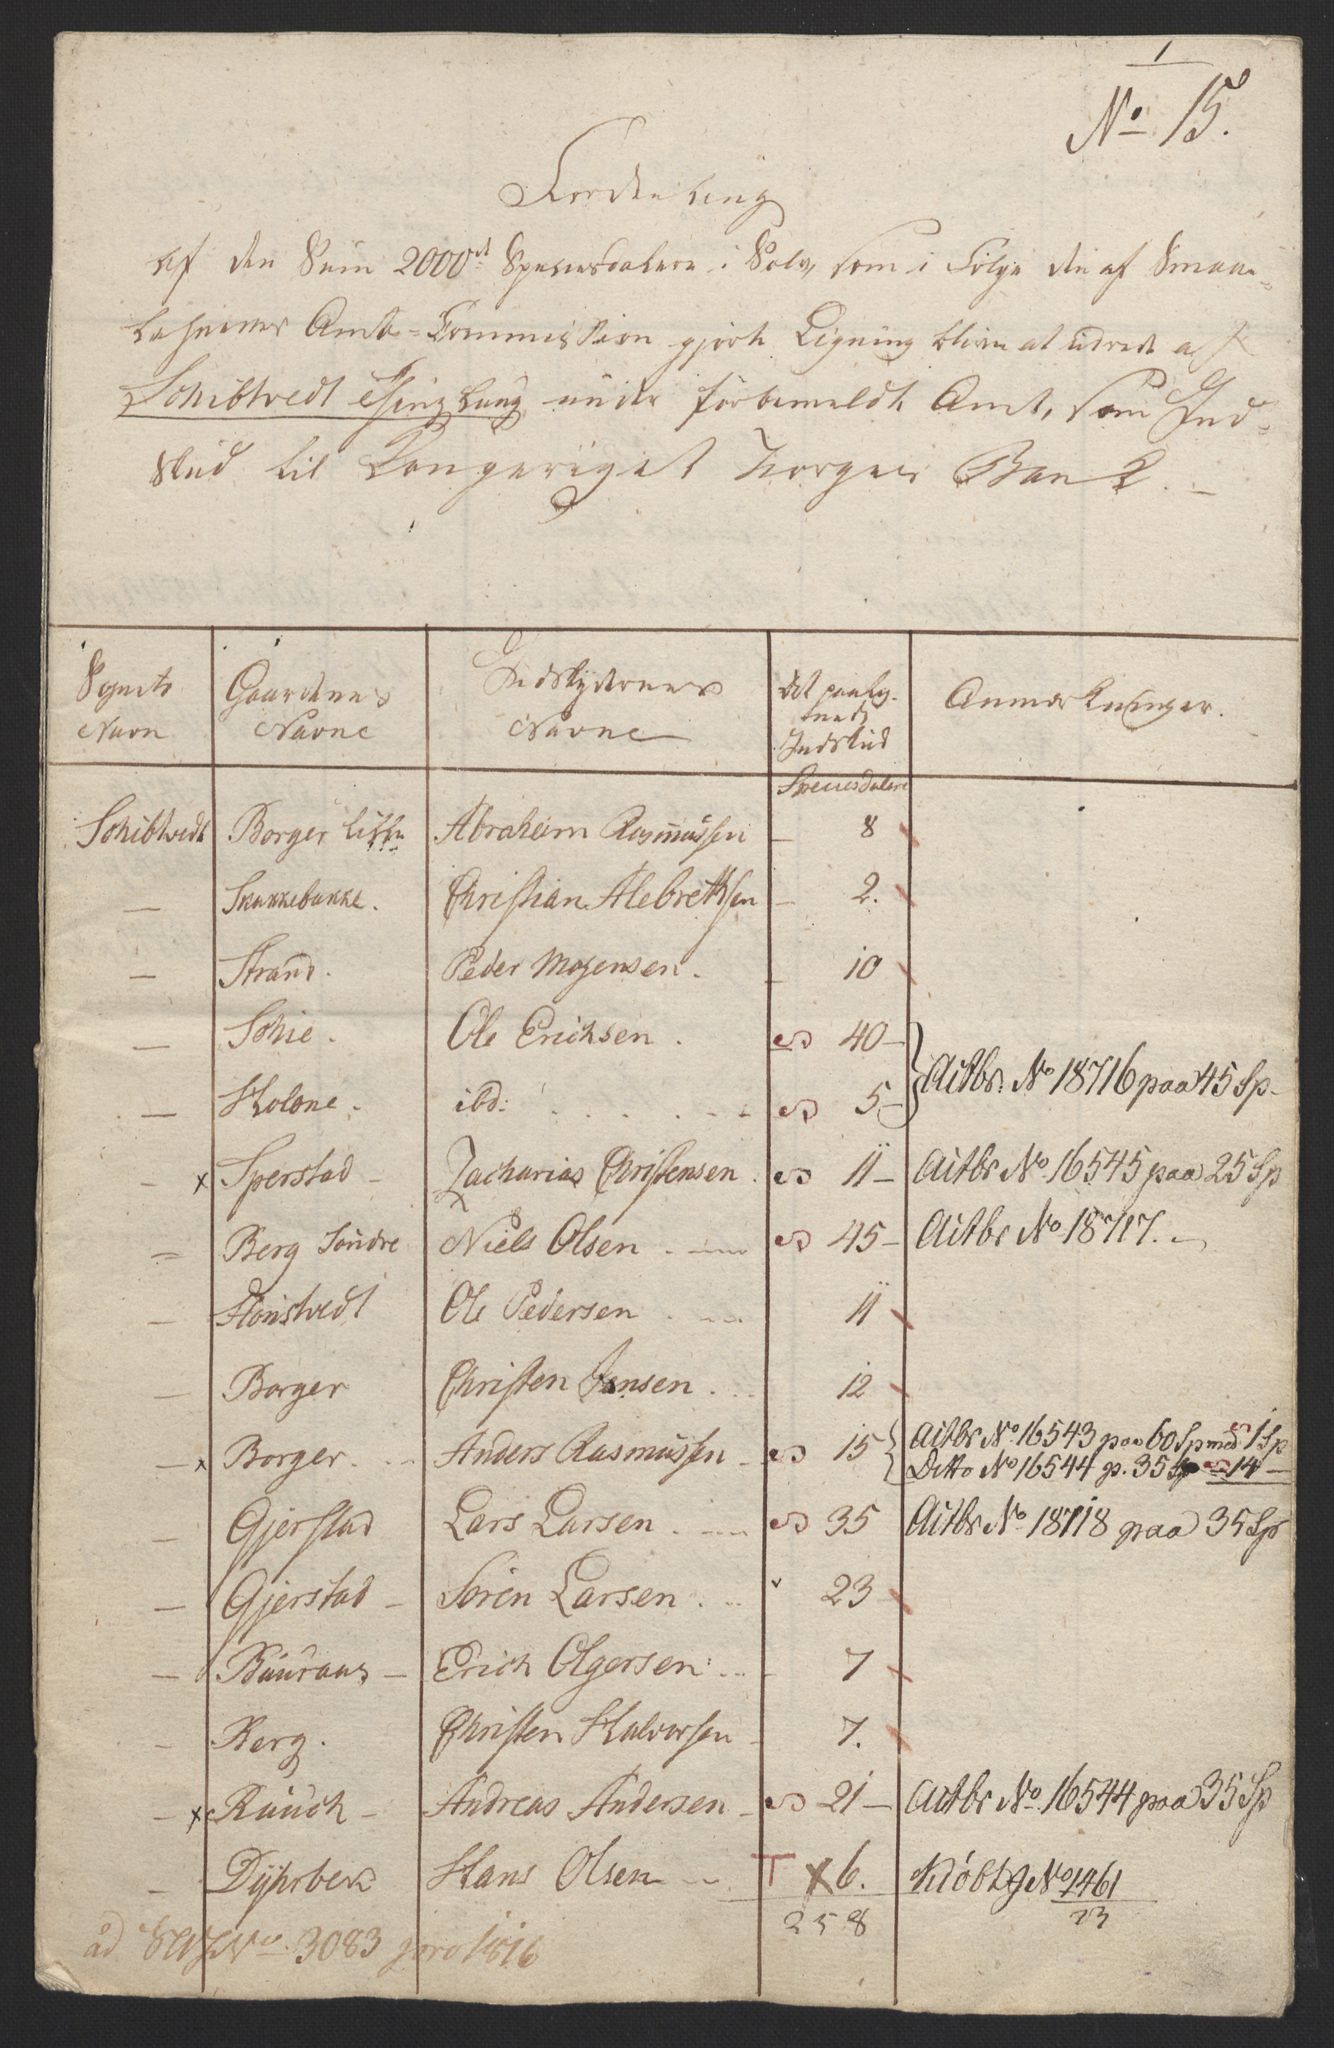 1
No 15.
Fordeeling
af den Sum 2000 rd Speciesdalere i Sølv, som i Følge den af Smaae-
lehnenes Amts-Commission gjorte Ligning bliver at udrede af
Schibtvedt Thinglaug under forbemeldte Amt, som Ind-
skud til Kongeriget Norges Bank.
Sognets Navn | Gaardenes Navne | Indskydernes Navne | Det paalignede Indskud | Anmærkninger.
Speciesdalere
Schibtvedt Borger lille Abraham Rasmussen 8
— Skakkebakke. Christian Alebrethsen 2.
— Strand. Peder Mogensen. 10
— Schie. Ole Erichsen. 40 —
Qitbr. No 18716 paa 45 Sp.
— Kolsne. ibd: 5 —
— x Sperstad — Zacharias Christensen. 11 — Qitbr No 16545 paa 25 Sp
— Berg Søndre Niels Olsen. 45 — Qitbr No 18717. —
— Ole Pedersen 11
— Borger Christen Jensen. 12
— x Borger. Anders Rasmussen 15 Qitbr No 16543 paa 60 Sp med 1 Sp
Ditto No 16544 p. 35 Sp — 14 —
— Gjerstad Lars Larsen. 35 Qitbr No 18718 paa 35 Sp
— Gjerstad — Søren Larsen. 23
— Buuraas — Erich Olgersen: 7
— Berg. Christen Halvorsen 7.
— x Ruuch — Andreas Andersen 21 — Qitbr No 16544 paa 35 Sp
— Dyhrbek Hans Olsen — T x 6. No 1461
23
258
ad No. 3083 pro 1816